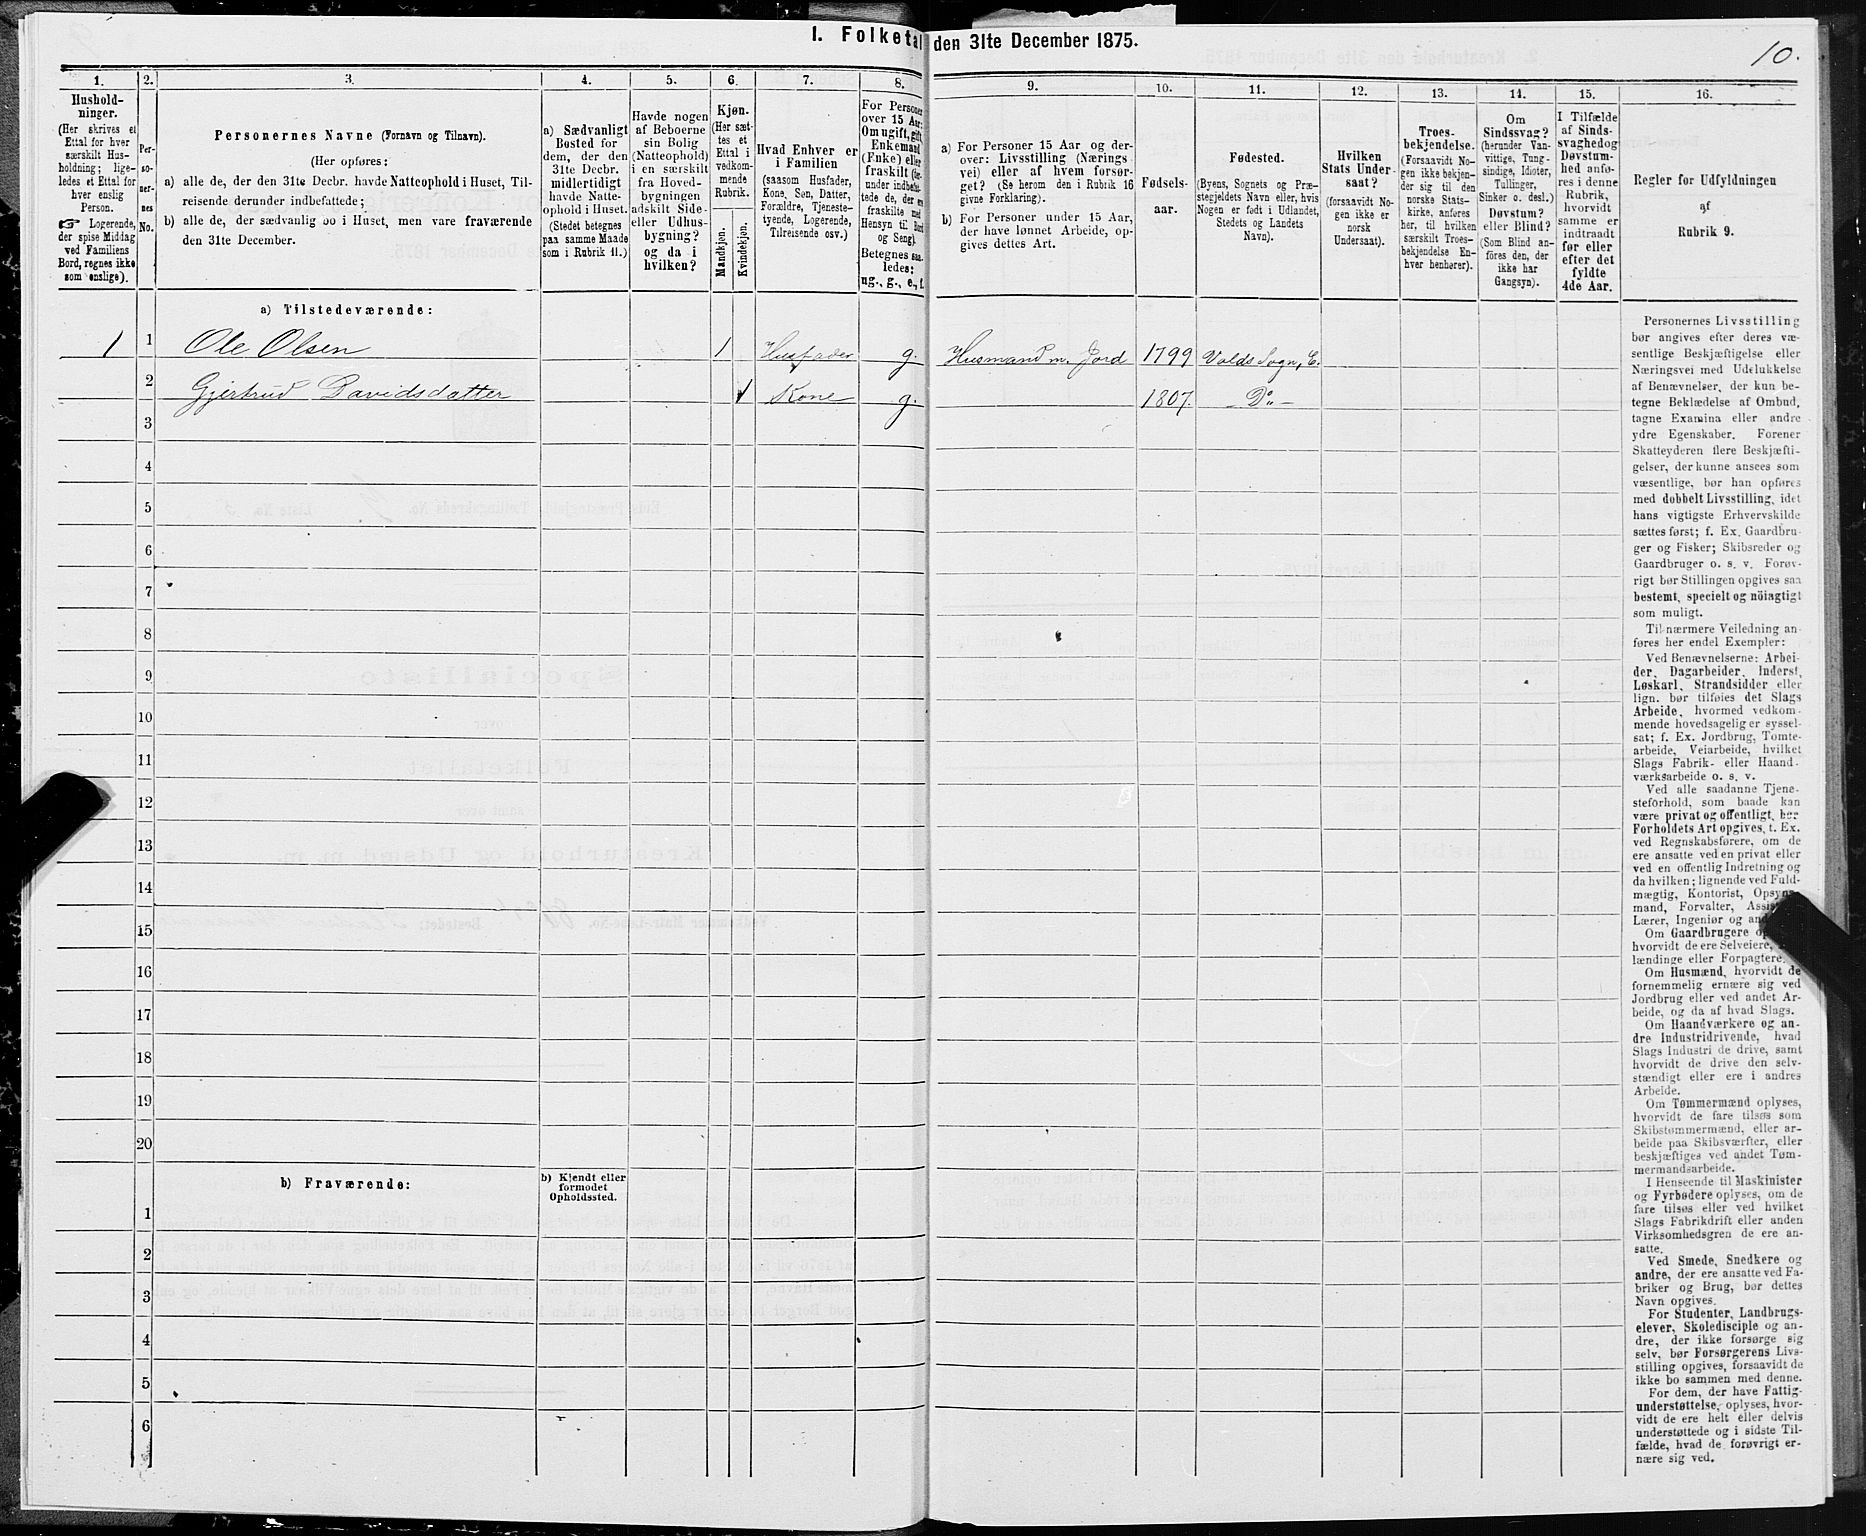 I. Folketal den 31te December 1875.
10.
1.
2.
3.
4.
5.
6.
7.
8.
9.
10.
11.
12.
13.
14.
15.
16.
Hushold-
ninger.
(Her skrives et
Ettal for hver
særskilt Hus-
holdning; lige-
ledes et Ettal for
hver enslig
Person.
☞ Logerende,
der spise Middag
ved Familiens
Bord, regnes ikke
som enslige).
Per-
so-
ner-
nes
No.
Personernes Navne (Fornavn og Tilnavn).
(Her opføres:
a) alle de, der den 31te Decbr. havde Natteophold i Huset, Til-
reisende derunder indbefattede;
b) alle de, der sædvanlig bo i Huset, men vare fraværende
den 31te December.
a) Sædvanligt
Bosted for
dem, der den
31te Decbr.
midlertidigt
havde Natte-
ophold i Huset.
(Stedet betegnes
paa samme Maade
som i Rubrik 11.)
Havde nogen
af Beboerne
sin Bolig
(Natteophold)
i en særskilt
fra Hoved-
bygningen
adskilt Side-
eller Udhus-
bygning?
og da i
hvilken?
Kjøn.
(Her sæt-
tes et
Ettal i
vedkom-
mende
Rubrik.
Mandkjøn.
Kvindekjøn.
Hvad Enhver er
i Familien
(saasom Husfader,
Kone, Søn, Datter,
Forældre, Tjeneste-
tyende, Logerende,
Tilreisende osv.)
For Personer
over 15 Aar:
Om ugift, gift,
Enkemand
(Enke) eller
fraskilt
Betegnes saa-
ledes:
ug., g., e., f.
a) For Personer 15 Aar og der-
over: Livsstilling (Nærings
vei) eller af hvem forsør-
get? (Se herom den i Rubrik 16
givne Forklaring).
b) For Personer under 15 Aar,
der have lønnet Arbeide, op-
gives dettes Art.
Fødsels-
aar.
Fødested.
(Byens, Sognets og Præ-
stegjeldets Navn eller, hvis
Nogen er født i Udlandet,
Stedets og Landets
Navn).
Hvilken
Stats Under-
saat?
(forsaavidt No-
gen ikke er
norsk
Undersaat).
Troes-
bekjendelse.
(Forsaavidt No-
gen ikke bekjen-
der sig til den
norske Stats-
kirke, anføres
her, til hvilken
særskilt Troes-
bekjendelse En-
hver henhører).
Om
Sindssvag?
(herunder Van-
vittige, Tung-
sindige, Idioter,
Tullinger,
Sinker o. desl.)
Døvstum?
eller Blind?
(Som Blind an-
føres den, der
ikke har
Gangsyn).
I Tilfælde
af Sinds-
svaghed og
Døvstum-
hed anfø-
res i denne
Rubrik,
hvorvidt
samme er
indtraadt
før eller
efter det
fyldte
4de Aar.
Regler for Udfyldningen
af
Rubrik 9.
a) Tilstedeværende:
1 1 Ole Olsen 1 Husfader g. Husmand m. Jord 1799 Volds Sogn, E.
2 Gjertrud Davidsdatter 1 Kone g. 1807. - Do -
3
4
5
6
7
8
9
10
11
12
13
14
15
16
17
18
19
20
b) Fraværende:
b) Kjendt eller
formodet
Opholdssted.
1
2
3
4
5
6
Personernes Livsstilling
bør angives efter deres væ-
sentlige Beskjæftigelse eller
Næringsvei med Udelukkelse
af Benævnelser, der kun be-
tegne Beklædelse af Ombud,
tagne Examina eller andre
ydre Egenskaber. Forener
Skatteyderen flere Beskjæfti-
gelser, der kunne ansees som
væsentlige, bør han opføres
med dobbelt Livsstilling, idet
hans vigtigste Erhvervskilde
sættes først; f. Ex. Gaardbru-
ger og Fisker; Skibsreder og
Gaardbruger o. s. v. Forøv-
rigt bør Stillingen opgives saa
bestemt, specielt og nöiagtigt
som muligt.
Til nærmere Veiledning an-
føres her endel Exempler:
Ved Benævnelserne: Arbei-
der, Dagarbeider, Inderst,
Løskarl, Strandsidder eller
lign. bør tilføies det Slags
Arbeide, hvormed vedkom-
mende hovedsagelig er syssel-
sat; f. Ex. Jordbrug, Tomte-
arbeide, Veiarbeide, hvilket
Slags Fabrik- eller Haand-
værksarbeide o. s. v.
Ved alle saadanne Tjene-
steforhold, som baade kan
være privat og offentligt, bør
Forholdets Art opgives, t. Ex.
ved Regnskabsførere, om de
ere ansatte ved en privat eller
ved en offentlig Indretning og
da hvilken; lignende ved Fuld-
mægtig, Kontorist, Opsyns-
mand, Forvalter,
Lærer, Ingeniør og
Om Gaardbrugere
hvorvidt de ere Selveiere,
lændinge eller Forpagtere.
Om Husmænd, hvorvidt de
fornemmelig ernære sig ved
Jordbrug eller ved andet Ar-
beide, og da af hvad Slags.
Om Haandværkere og an-
dre Industridrivende, hvad
Slags Industri de drive, samt
hvorvidt de drive den selv-
stændigt eller ere i andres
Arbeide.
Om Tømmermænd oplyses,
hvorvidt de fare tilsøs som
Skibstømmermænd, eller ar-
beide paa Skibsværfter, eller
beskjæftiges ved andet Tøm-
mermandsarbeide.
I Henseende til Maskinister
og Fyrbødere oplyses, om de
fare tilsøs eller ved hvilket
Slags Fabrikdrift eller anden
Virksomhedsgren de ere an-
satte.
Ved Smede, Snedkere og
andre, der ere ansatte ved Fa-
briker og Brug, bør dettes
Navn opgives.
For Studenter, Landbrugs-
elever, Skoledisciple og an-
dre, der ikke forsørge sig
selv, bør Forsørgerens Livs-
stilling opgives, forsaavidt de
ikke bo sammen med denne.
For dem, der have Fattig-
understøttelse, oplyses, hvor-
vidt de ere helt eller delvis
understøttede og i sidste Til-
fælde, hvad de forøvrigt er-
nære sig ved.